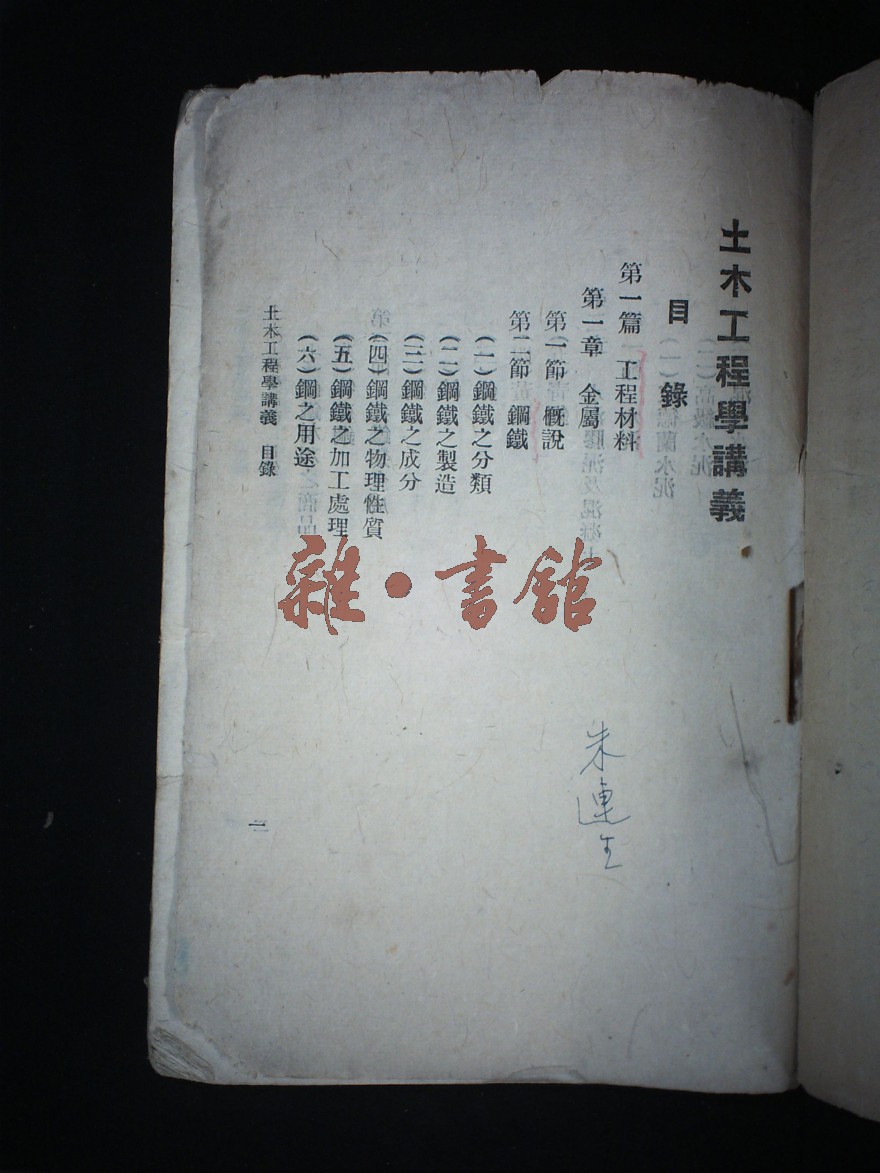 土木工程學講義
目錄
第一篇 工程材料
第一章 金屬
第一節 概說
第二節 鋼鐵
(一)鋼鐵之分類
(二)鋼鐵之製造
(三)鋼鐵之成分
(四)鋼鐵之物理性質
(五)鋼鐵之加工處理
(六)鋼之用途
土木工程學講義 目錄
朱連生
雜·書館